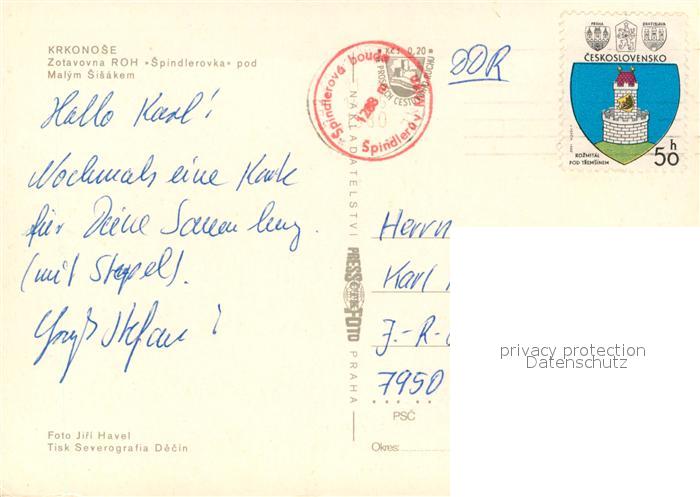 KRKONOŠE
Zotavovna ROH »Špindlerovka« pod
Malým Šišákem
Hallo Karl!
Nochmals eine Karte
für Deine Sammlung.
(mit Stempel).
Gruß Stefan!
Foto Jiří Havel
Tisk Severografia Děčín
NAKLADATELSTVÍ
PRESSFOTO
PRAHA
Kčs 0,20
Špindlerova bouda
Špindlerův
DDR
PRAHA
BRATISLAVA
ČESKOSLOVENSKO
ROŽMITÁL
POD TŘEMŠÍNEM
50 h
Herrn
Karl
J.-R-
7950
PSČ
Okres:
privacy protection
Datenschutz